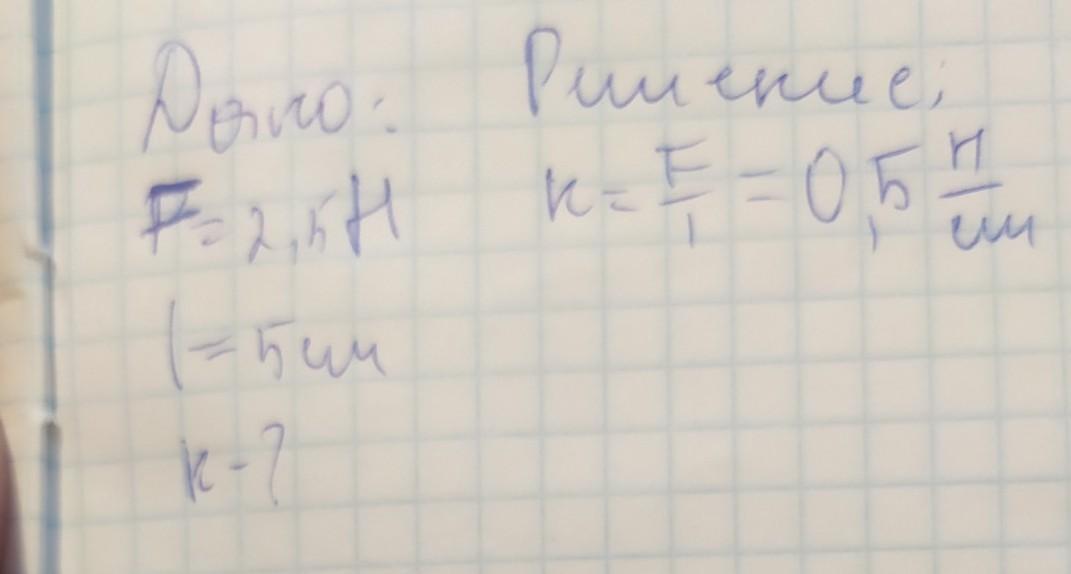 Дано:
F=2,5Н
l=5см
к-?
Решение:
к=F/l=0,5 Н/см